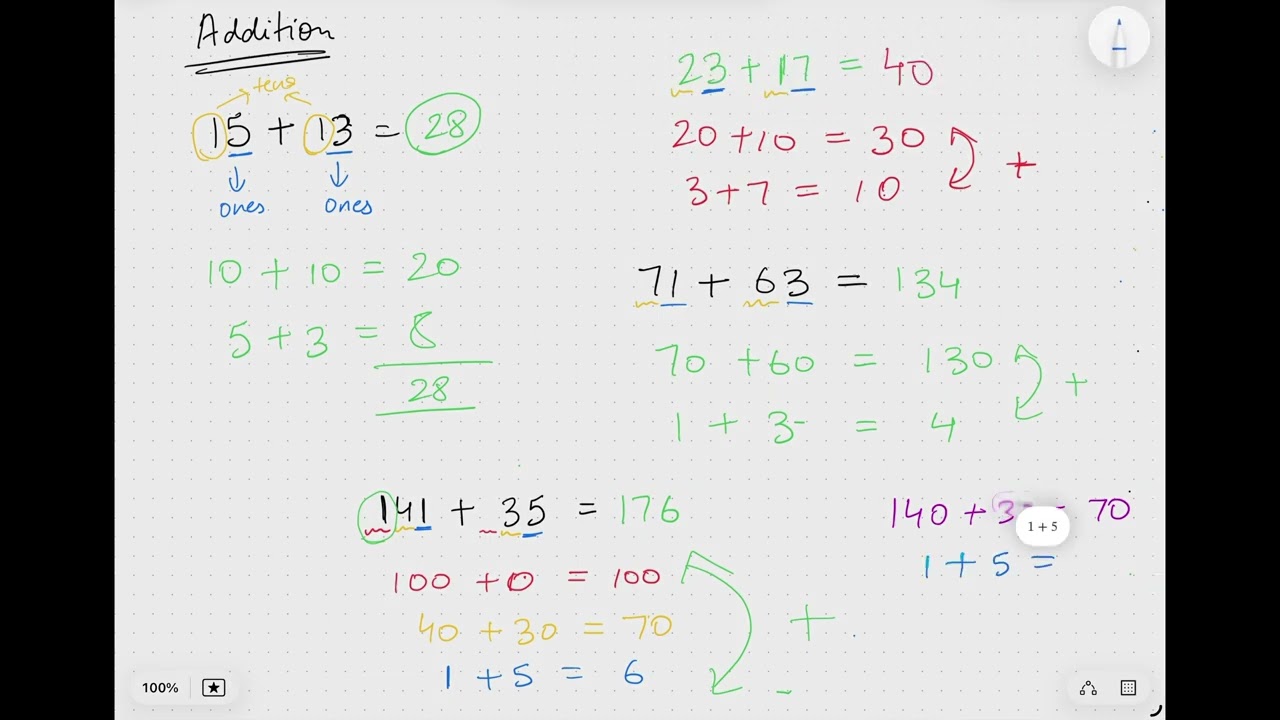 Addition
tens
15 + 13 = 28
ones ones
10 + 10 = 20
5 + 3 = 8
28
23 + 17 = 40
20 + 10 = 30
3 + 7 = 10
+
71 + 63 = 134
70 + 60 = 130
1 + 3 = 4
+
141 + 35 = 176
100 + 0 = 100
40 + 30 = 70
1 + 5 = 6
+
140 + 3 = 70
1 + 5
1 + 5 =
100%